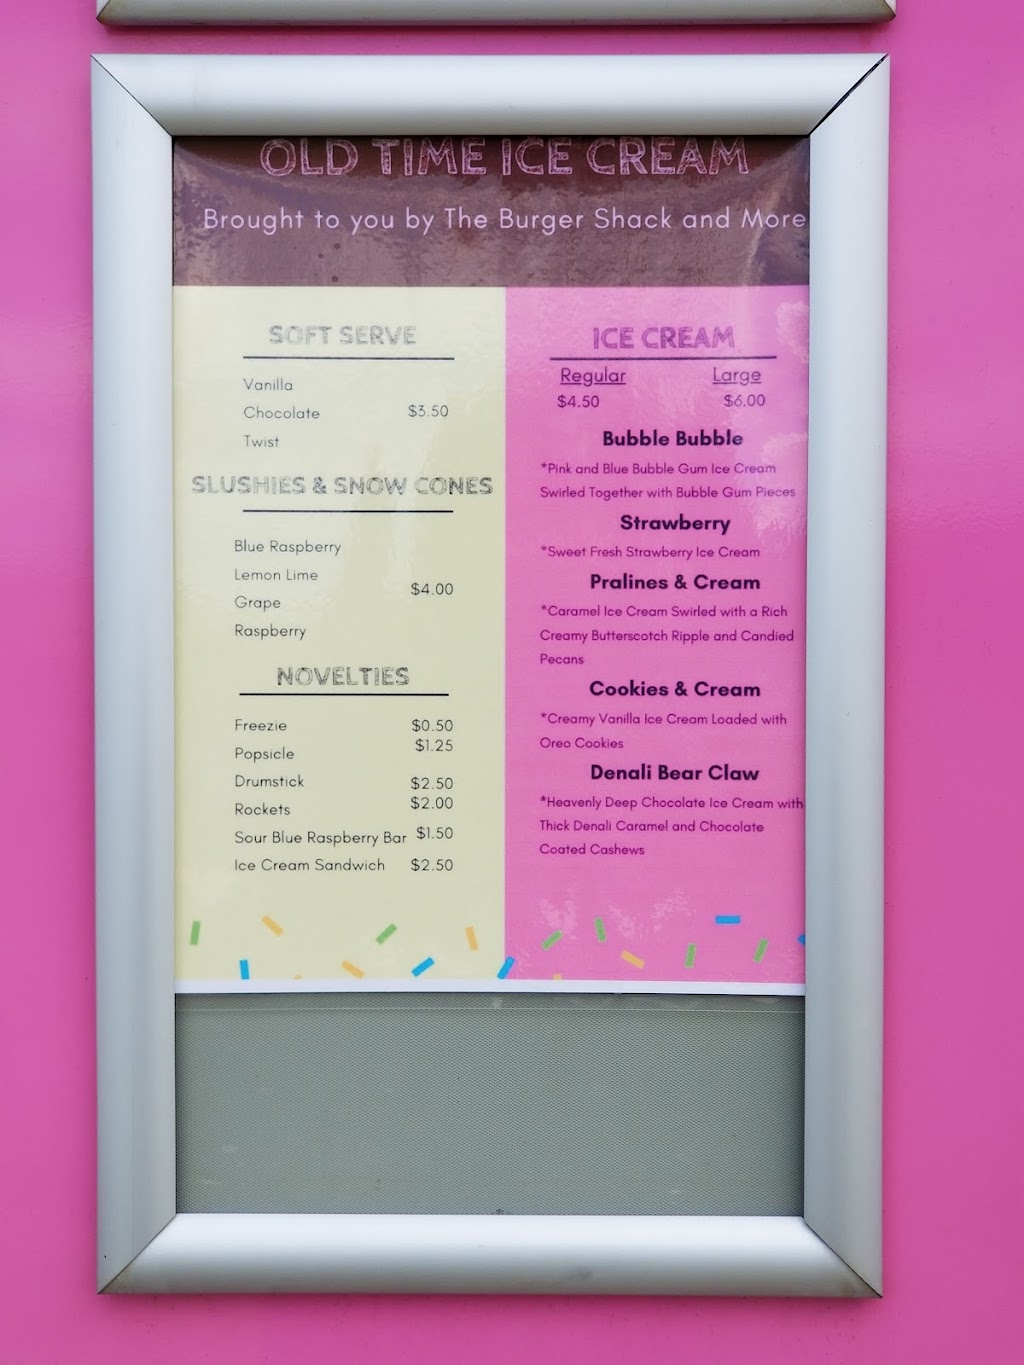 OLD TIME ICE CREAM
Brought to you by The Burger Shack and More
SOFT SERVE
Vanilla
Chocolate $3.50
Twist
SLUSHIES & SNOW CONES
Blue Raspberry
Lemon Lime
$4.00
Grape
Raspberry
NOVELTIES
Freezie $0.50
Popsicle $1.25
Drumstick $2.50
Rockets $2.00
Sour Blue Raspberry Bar $1.50
Ice Cream Sandwich $2.50
ICE CREAM
Regular Large
$4.50 $6.00
Bubble Bubble
*Pink and Blue Bubble Gum Ice Cream
Swirled Together with Bubble Gum Pieces
Strawberry
*Sweet Fresh Strawberry Ice Cream
Pralines & Cream
*Caramel Ice Cream Swirled with a Rich
Creamy Butterscotch Ripple and Candied
Pecans
Cookies & Cream
*Creamy Vanilla Ice Cream Loaded with
Oreo Cookies
Denali Bear Claw
*Heavenly Deep Chocolate Ice Cream with
Thick Denali Caramel and Chocolate
Coated Cashews